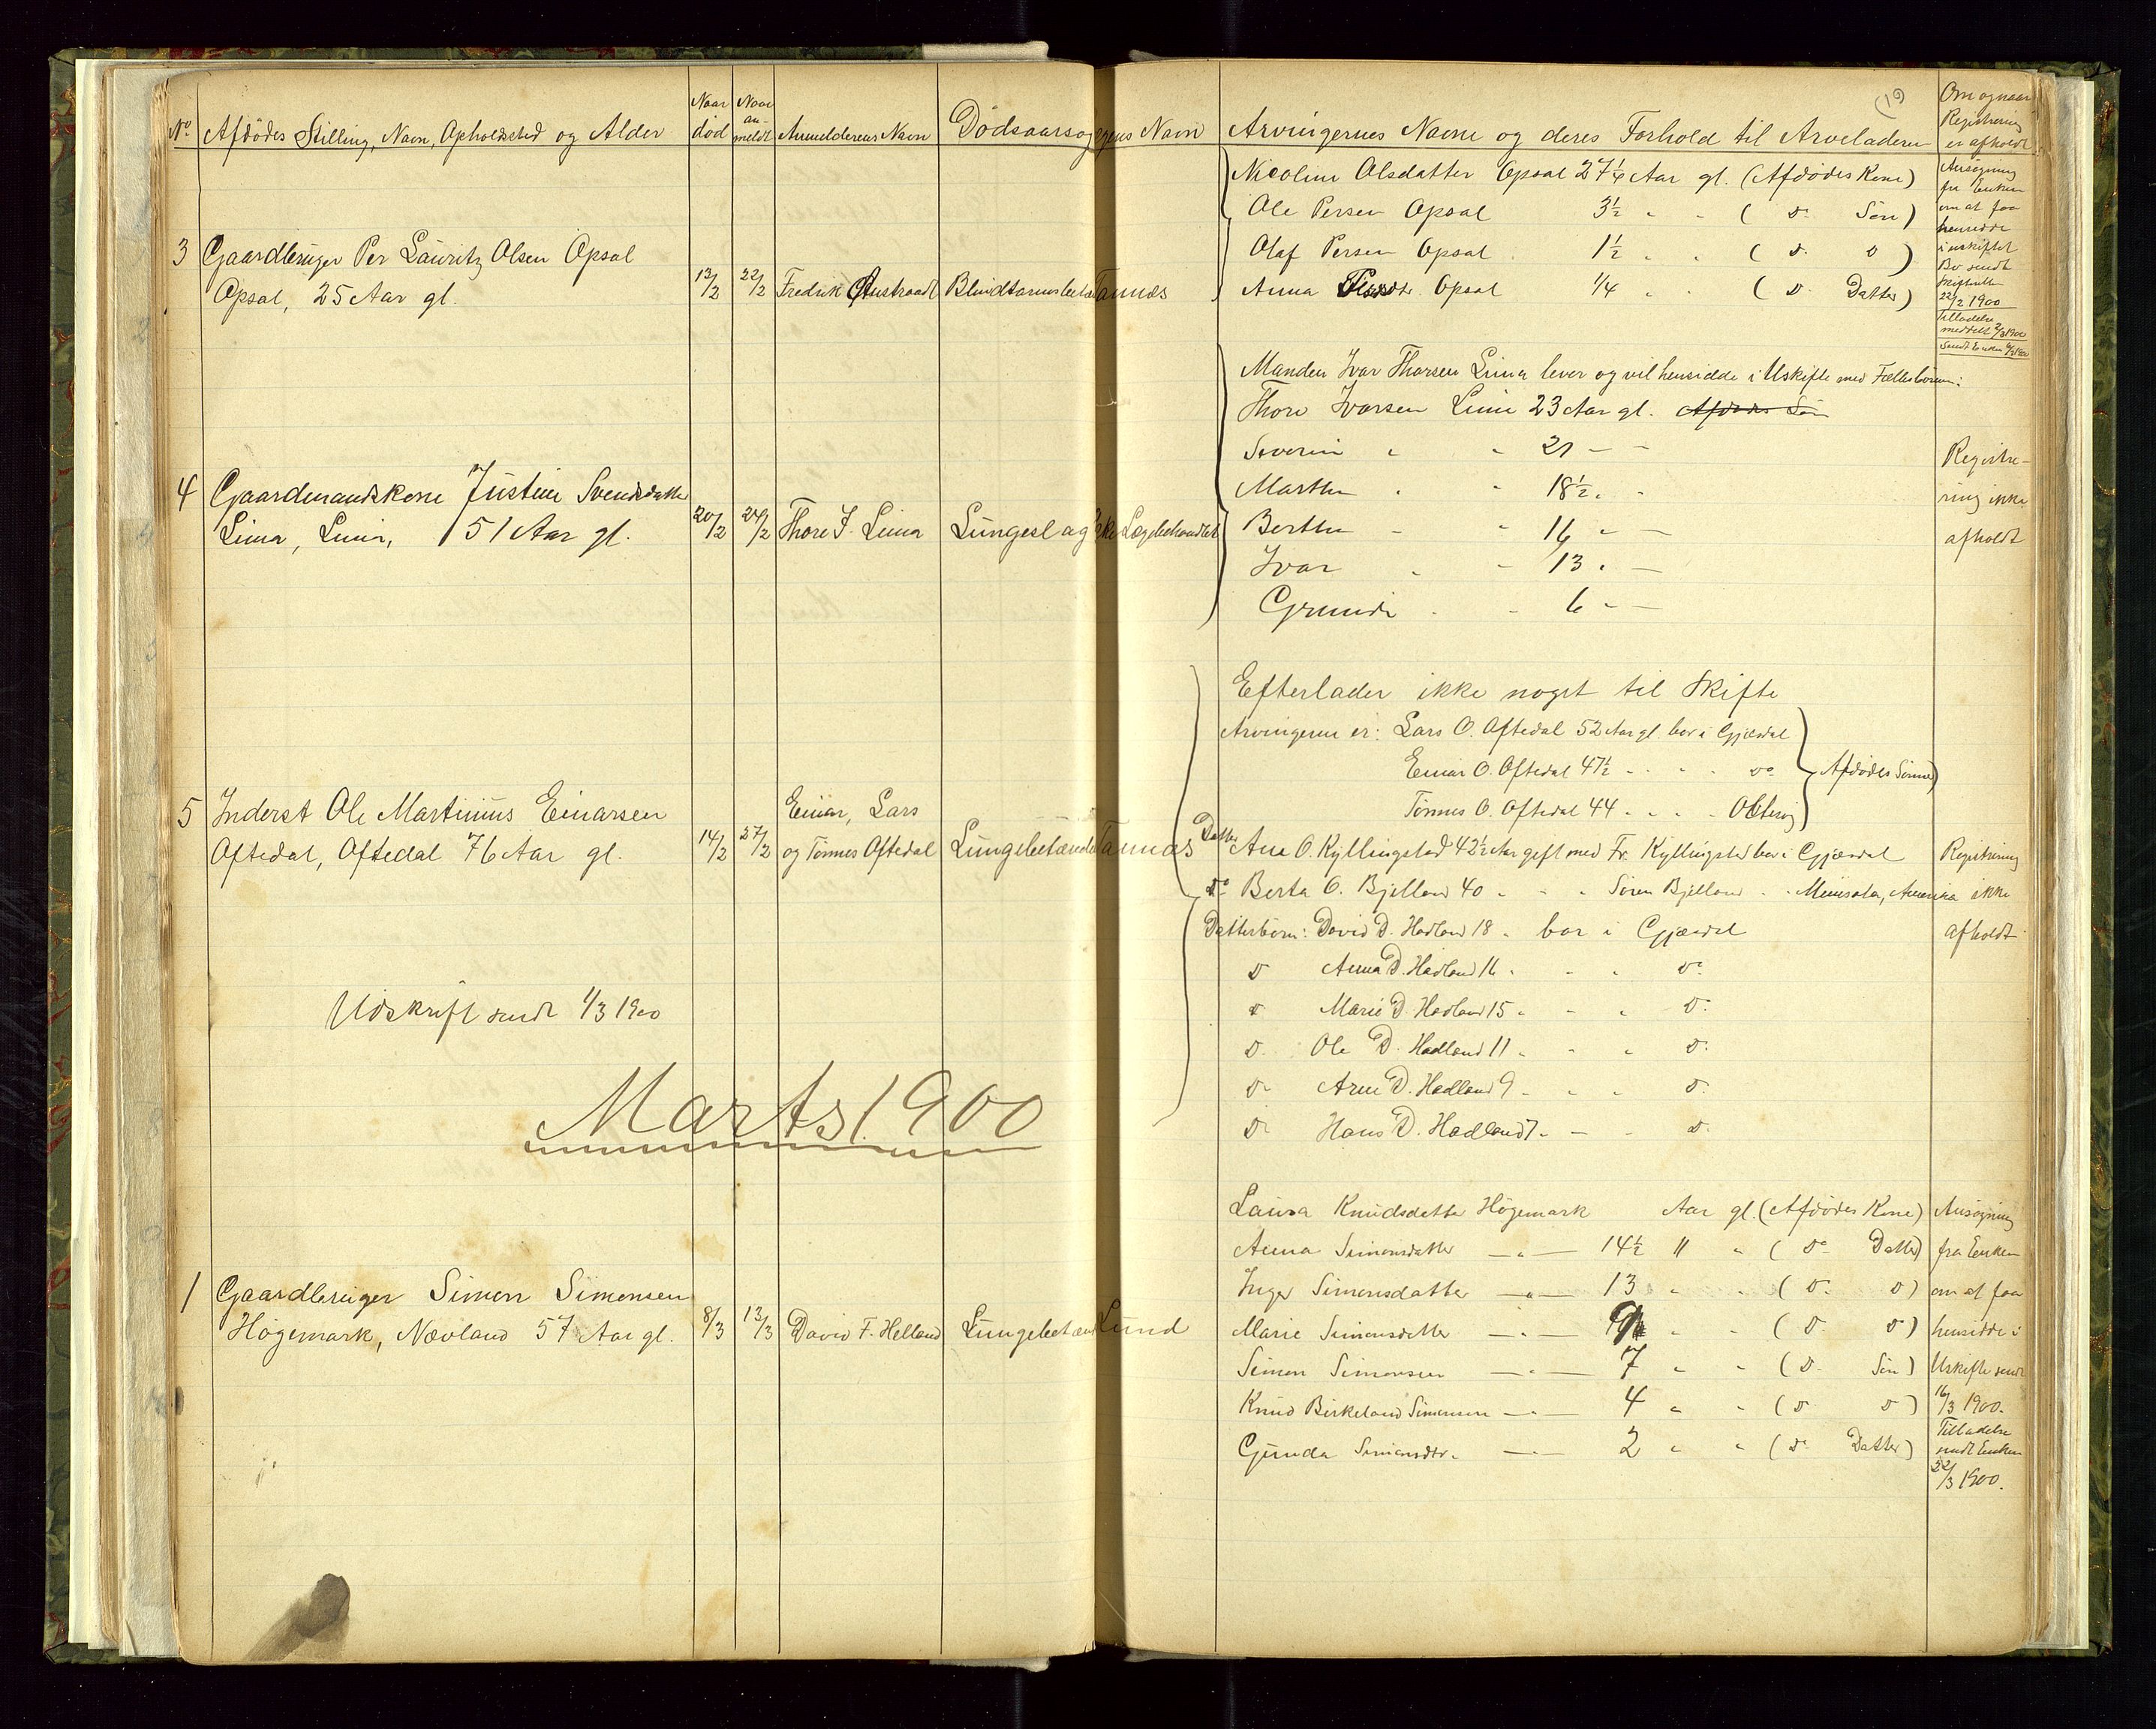 (19
No Afdödes Stilling, Navn, Opholdssted og Alder
Naar död
Naar an-meldt
Anmelderens Navn
Dödsaarsog
gens Navn
Arvingernes Navne og deres Forhold til Arveladeren
Om og naar Registrering er afholdt
3 Gaardbruger Per Lauritz Olsen Opsal
Opsal, 25 Aar gl.
13/2 22/2 Fredrik Austraadt Blindtarmsbetæn Tannæs
Nicoline Olsdatter Opsal 27¼ Aar gl. (Afdödes Kone)
Ole Persen Opsal 3½ " " ( do Sön)
Olaf Persen Opsal 1½ " " ( do do )
Anna Persdtr. Opsal 1/4 " " ( do Datter)
Ansögning
fra Enken
om at faa
hensidde
i uskiftet
Bo sendt
Skifteretten
22/2 1900
Tilladelse
meddelt 2/3 1900
Sendt Enken 6/3 1900
4 Gaardmandskone Justine Svendsdatter
Lima, Lima, 51 Aar gl.
20/2 24/2 Thore I. Lima Lungeslag Ikke Lægebehandlet
Manden Ivar Thorsen Lima lever og vil hensidde i Uskifte med Fællesbörn:
Thore Ivarsen Lima 23 Aar gl. Afdödes Sön
Severin " " 21 — —
Marthe " " 18½ " "
Berthe — " 16 " —
Ivar " — 13 " —
Grunde " " 6 — —
Registre-
ring ikke
afholdt
5 Inderst Ole Martinius Einarsen
Oftedal, Oftedal 76 Aar gl.
14/2 27/2 Einar, Lars
og Tönnes Oftedal Lungebetænde Tannæs
Efterlader ikke noget til Skifte
Arvingerne er: Lars O. Oftedal 52 Aar gl. bor i Gjæsdal
Einar O. Oftedal 47½ " " " " do
Tönnes O. Oftedal 44 " " " "
Afdödes Sönner)
Datter Ane O. Kyllingstad 42½ Aar gift med Fr. Kyllingstad bor i Gjæsdal
do Berta O. Bjelland 40 " " " Sören Bjelland " " Minisota, Amerika
Datterbörn: David D. Hadland 18 " bor i Gjæsdal
do Anna D. Hadland 16 " " " do
do Marie D. Hadland 15 " " " do
do Ole D. Hadland 11 " " " do
do Arne D. Hadland 9 " " " do
do Hans D. Hadland 7 " — " do
Registrering
ikke
afholdt
Udskrift sendt 1/3 1900
Marts 1900
1 Gaardbruger Simon Simonsen
Högemark, Nævland 57 Aar gl.
8/3 13/3 David F. Helland Lungebetænd Lund
Laura Knudsdatter Högemark Aar gl. (Afdödes Kone)
Anna Simonsdatter —"— 14½ " " ( do Datter)
Inger Simonsdatter —"— 13 " " ( do do)
Marie Simonsdatter —"— " " ( do do)
Simon Simonsen —"— 7 " " ( do Sön)
Knud Birkeland Simonsen —"— 4 " " ( do do)
Gunda Simonsdtr. —"— 2 " " ( do Datter)
Ansögning
fra Enken
om at faa
hensidde i
Uskifte sendt
16/3 1900.
Tilladelse
sendt Enken
22/3 1900.